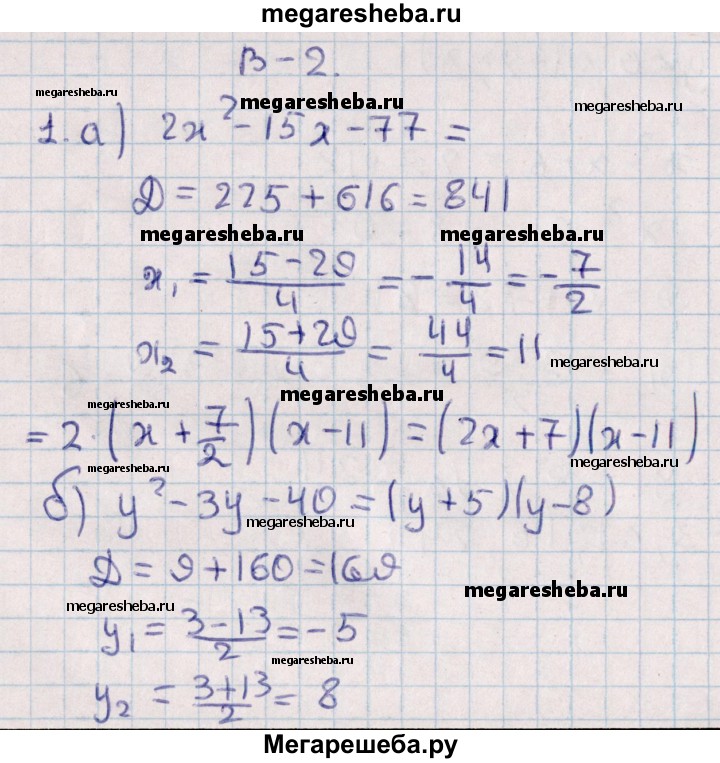 megaresheba.ru
В-2.
megaresheba.ru megaresheba.ru megaresheba.ru
1. а) 2x² - 15x - 77 =
Д = 225 + 616 = 841
megaresheba.ru megaresheba.ru
x₁ = (15-29)/4 = -14/4 = -7/2
x₂ = (15+29)/4 = 44/4 = 11
megaresheba.ru
megaresheba.ru
megaresheba.ru
= 2·(x + 7/2)(x - 11) = (2x + 7)(x - 11)
megaresheba.ru megaresheba.ru
б) y² - 3y - 40 = (y + 5)(y - 8)
megaresheba.ru
Д = 9 + 160 = 169
megaresheba.ru
megaresheba.ru
y₁ = (3-13)/2 = -5
megaresheba.ru
y₂ = (3+13)/2 = 8
megaresheba.ru
Мегарешеба.ру